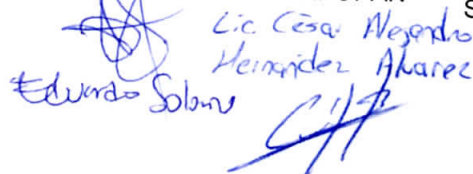 Lic. César Alejandro
Hernández Alvarez
Eduardo Solano